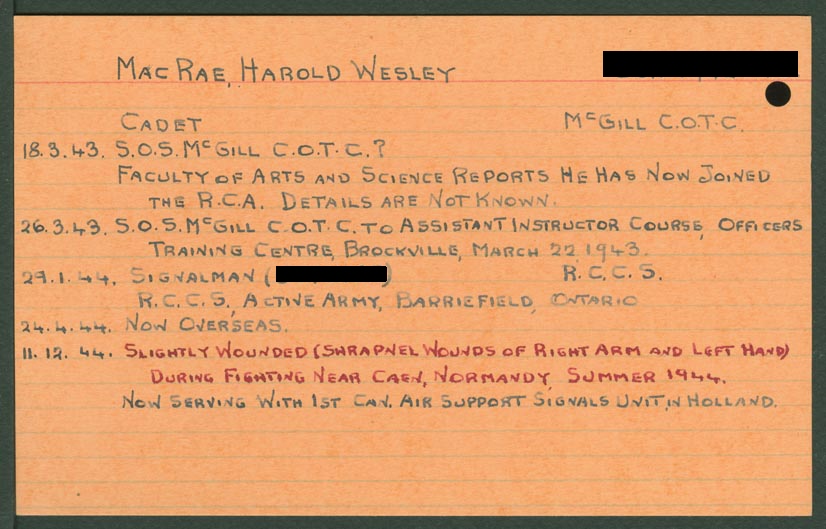 MacRae, Harold Wesley
Cadet McGill C.O.T.C.
18.3.43. S.O.S. McGill C.O.T.C.?
Faculty of Arts and Science Reports He Has Now Joined
the R.C.A. Details are Not Known.
26.3.43. S.O.S. McGill C.O.T.C. to Assistant Instructor Course, Officers
Training Centre, Brockville, March 22, 1943.
29.1.44. Signalman ( ) R.C.C.S.
R.C.C.S., Active Army, Barriefield, Ontario
24.4.44. Now Overseas.
11.12.44. Slightly Wounded (Shrapnel Wounds of Right Arm and Left Hand)
During Fighting Near Caen, Normandy, Summer 1944.
Now Serving With 1st Can. Air Support Signals Unit, in Holland.